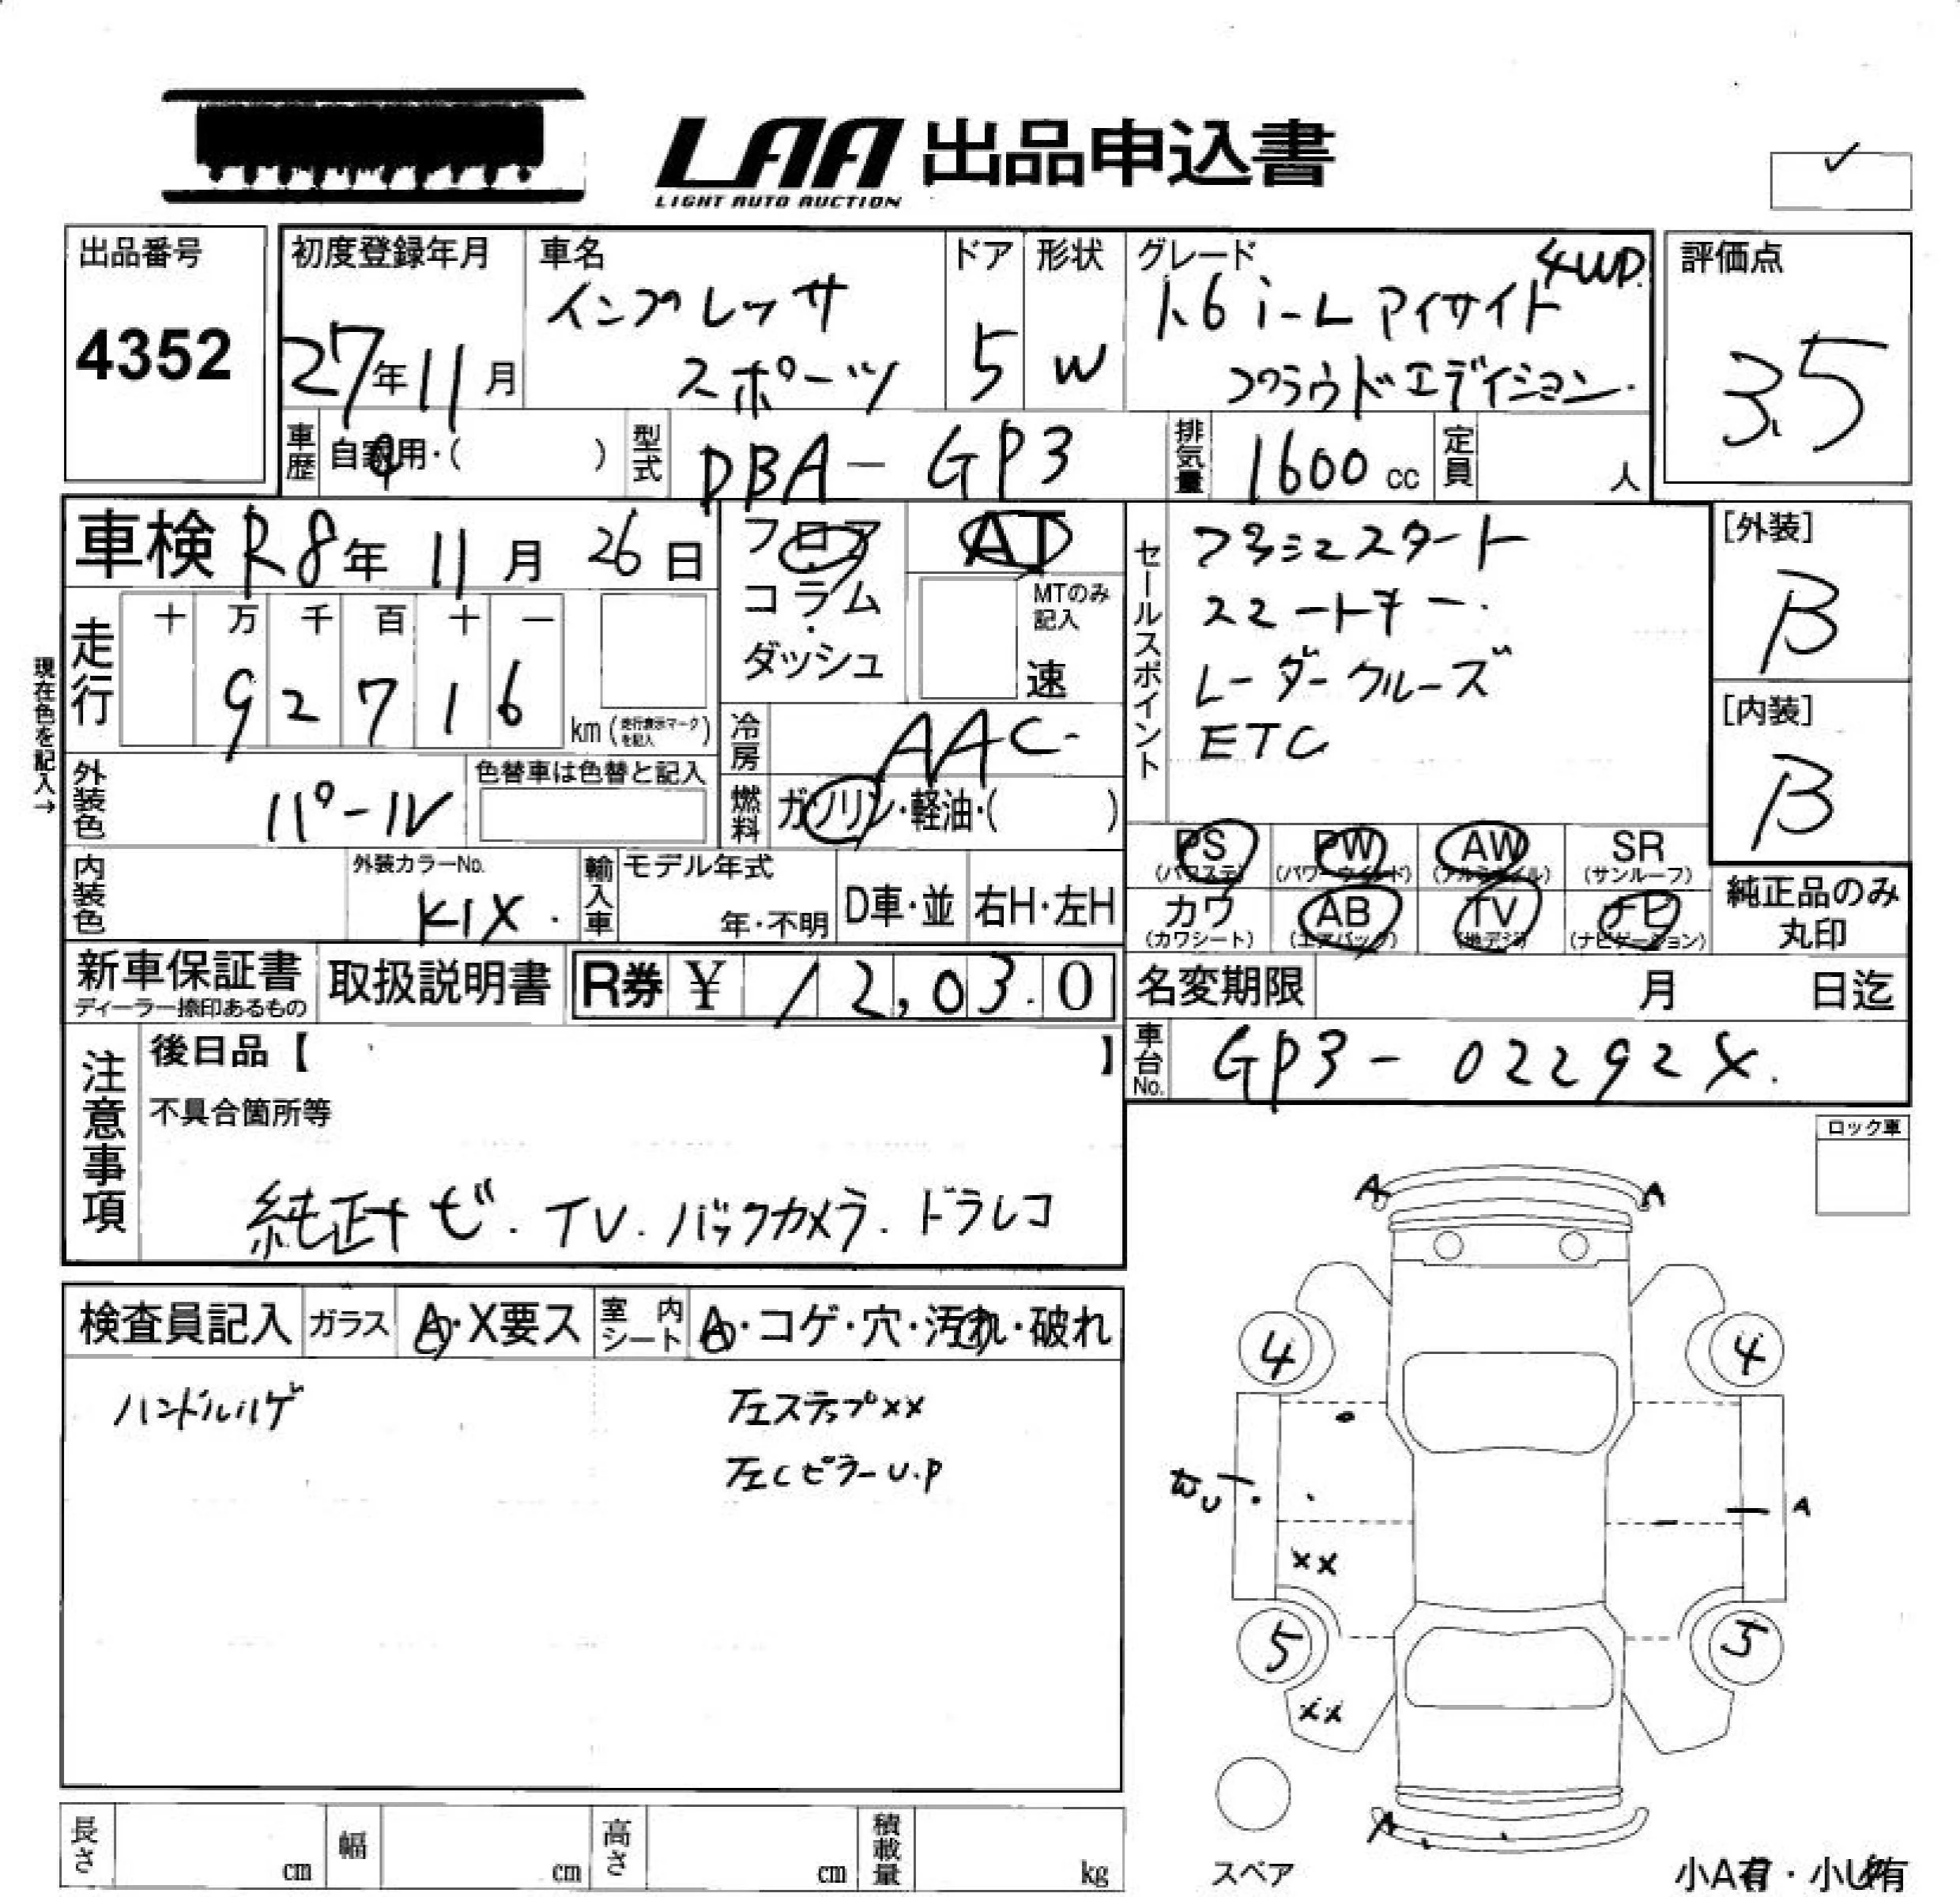 LAA 出品申込書
LIGHT AUTO AUCTION
出品番号
4352
初度登録年月
27年11月
車名
インプレッサ
スポーツ
ドア
5
形状
W
グレード
4WD.
1.6 i-L アイサイト
プラウドエディション.
評価点
3.5
車歴
自家用・( )
型式
DBA-GP3
排気量
1600 cc
定員
人
車検 R8年 11月 26日
フロア
コラム
ダッシュ
AT
MTのみ
記入
速
セールスポイント
プッシュスタート
スマートキー.
レーダークルーズ
ETC
[外装]
B
[内装]
B
現在色を記入→
走行
十 万 千 百 十 一
9 2 7 1 6
km (走行表示マークを記入)
冷房
AAC
外装色
パール
色替車は色替と記入
燃料
ガソリン・軽油・( )
内装色
外装カラーNo.
K1X.
輸入車
モデル年式
年・不明
D車・並
右H・左H
PS
(パワステ)
PW
(パワーウインド)
AW
(アルミホイル)
SR
(サンルーフ)
カワ
(カワシート)
AB
(エアバック)
TV
(地デジ)
ナビ
(ナビゲーション)
純正品のみ
丸印
新車保証書
ディーラー捺印あるもの
取扱説明書
R券 ¥ 12,030
名変期限 月 日迄
車台No.
GP3-02292X.
注意事項
後日品【 】
不具合箇所等
純正ナビ.TV.バックカメラ.ドラレコ
ロック車
検査員記入
ガラス
A・X要ス
室内シート
A・コゲ・穴・汚れ・破れ
ハンドルハゲ
左ステップXX
左CピラーU.P
A A
4 4
U
A
XX
5 5
XX
A
スペア
小A有・小U有
長さ cm
幅 cm
高さ cm
積載量 kg